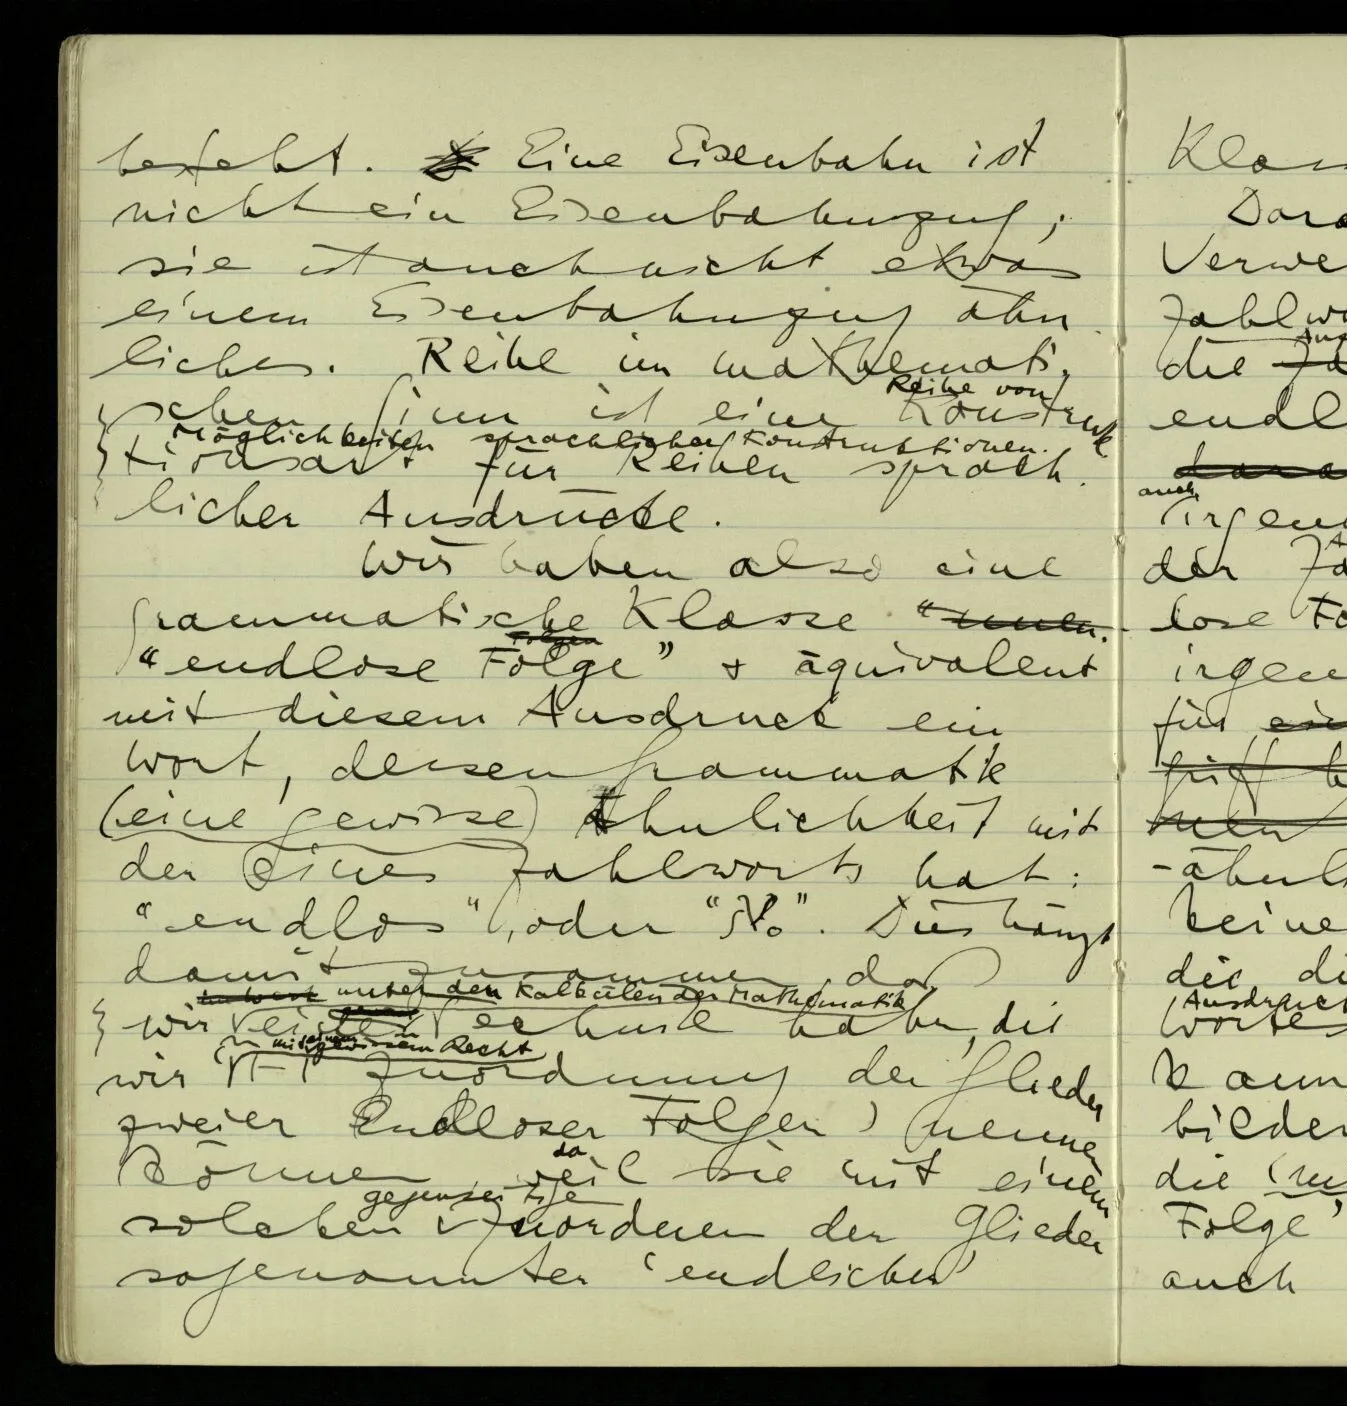 besteht. Eine Eisenbahn ist
nicht ein Eisenbahnzug;
sie ist auch nicht etwas
einem Eisenbahnzug ähn-
liches. Reihe im mathemati-
Reihe von
schen Sinn ist eine Konstruk-
Möglichkeiten sprachlicher Konstruktionen.
tionsart für Reihen sprach-
licher Ausdrücke.
Wir haben also eine
grammatische Klasse "unen-
Folgen
"endlose Folge" + äquivalent
mit diesem Ausdruck ein
Wort, dessen Grammatik
(eine gewisse) Ähnlichkeit mit
der eines Zahlworts hat:
"endlos", oder "ℵ₀". Dies hängt
damit zusammen, daß
unter den Kalkülen der Mathematik
wir eine Technik haben, die
mit einem gewissen Recht
wir '1-1 Zuordnung der Glieder
zweier Endloser Folgen' nennen
da
können, weil sie mit einem
gegenseitige
solchen Zuordnen der Glieder
sogenannter 'endlicher'
Klas
Dara
Verwe
Zahlwo
die
endl
auch
irgen
der
lose Fo
irgen
für
griff
men
-ähnl
keine
die di
Ausdruck
Wortes
kann
bilden
die
Folge'
auch